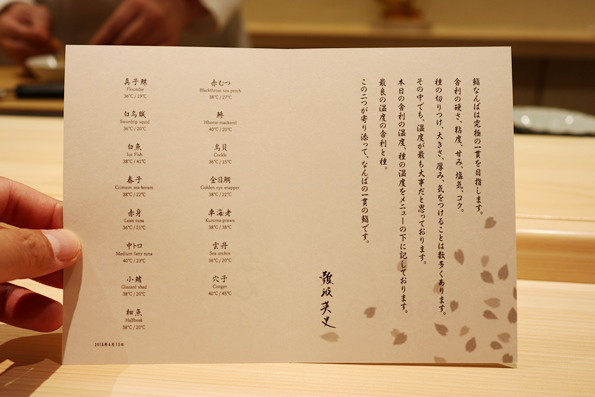 鮨なんばは究極の一貫を目指します。
舎利の硬さ、粘度、甘み、塩気、コク。
種の切りつけ、大きさ、厚み、気をつけることは数多くあります。
その中でも、温度が最も大事だと思っております。
本日の舎利の温度、種の温度をメニューの下に記しております。
最良の温度の舎利と種。
この二つが寄り添って、なんばの一貫の鮨です。
難波英史
赤むつ
Blackthroat sea perch
38℃/27℃
Horse mackerel
40℃/20℃
鳥貝
Cockle
36℃/15℃
金目鯛
Golden eye snapper
38℃/22℃
車海老
Kuruma prawn
38℃/38℃
雲丹
Sea urchin
36℃/20℃
穴子
Conger
40℃/45℃
真子鰈
Flounder
36℃/19℃
白烏賊
Swordtip squid
36℃/20℃
白魚
Ice Fish
春子
Crimson sea bream
38℃/22℃
赤身
Lean tuna
36℃/22℃
中トロ
Medium fatty tuna
40℃/23℃
小鰭
Gizzard shad
38℃/20℃
細魚
Halfbeak
38℃/20℃
2018年4月13日